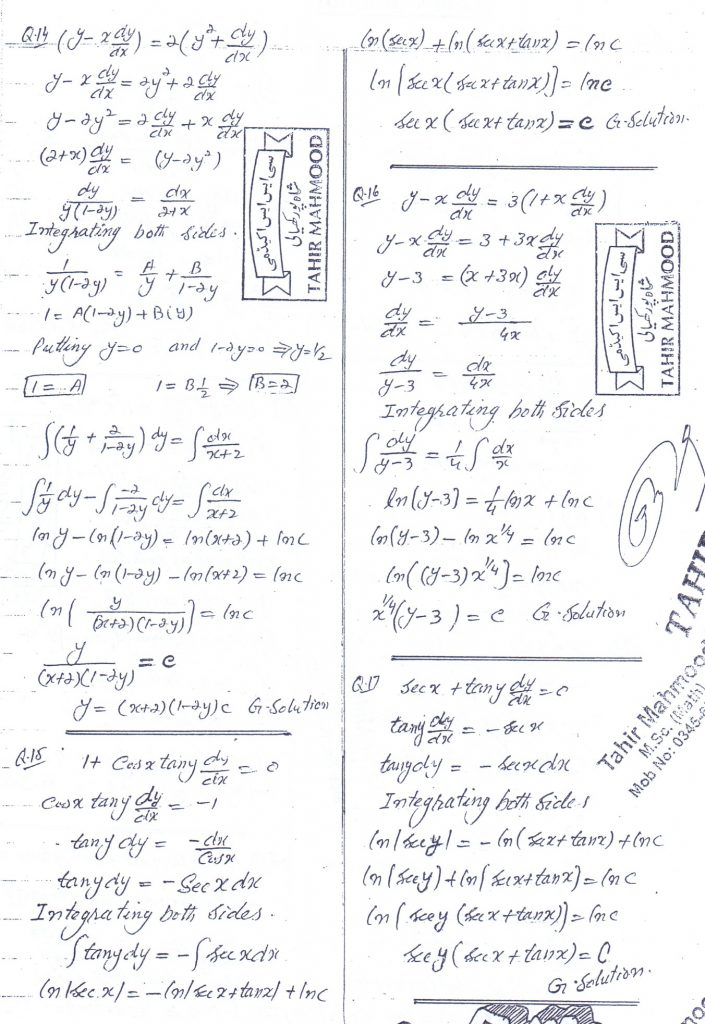 Q.14 (y - x dy/dx) = 2(y² + dy/dx)
y - x dy/dx = 2y² + 2 dy/dx
y - 2y² = 2 dy/dx + x dy/dx
(2+x) dy/dx = (y - 2y²)
dy/y(1-2y) = dx/2+x
Integrating both sides.
1/y(1-2y) = A/y + B/1-2y
1 = A(1-2y) + B(y)
Putting y=0 and 1-2y=0 ⇒ y=1/2
1 = A 1 = B 1/2 ⇒ B=2
∫(1/y + 2/1-2y) dy = ∫ dx/x+2
∫ 1/y dy - ∫ -2/1-2y dy = ∫ dx/x+2
ln y - ln(1-2y) = ln(x+2) + ln c
ln y - ln(1-2y) - ln(x+2) = ln c
ln [ y/(x+2)(1-2y) ] = ln c
y/(x+2)(1-2y) = c
y = (x+2)(1-2y)c G-Solution
Q.15 1 + Cosx tany dy/dx = 0
Cosx tany dy/dx = -1
tany dy = -dx/Cosx
tany dy = -Sec x dx
Integrating both sides.
∫tany dy = -∫sec x dx
ln|sec x| = -ln|secx+tanx| + lnc
ln(secx) + ln(secx+tanx) = ln c
ln[secx(secx+tanx)] = lnc
secx(secx+tanx) = c G-Solution.
Q.16 y - x dy/dx = 3(1 + x dy/dx)
y - x dy/dx = 3 + 3x dy/dx
y - 3 = (x+3x) dy/dx
dy/dx = y-3/4x
dy/y-3 = dx/4x
Integrating both sides
∫ dy/y-3 = 1/4 ∫ dx/x
ln(y-3) = 1/4 lnx + lnc
ln(y-3) - ln x^1/4 = lnc
ln((y-3)x^1/4] = lnc
x^1/4(y-3) = c G-Solution
Q.17 secx + tany dy/dx = 0
tany dy/dx = -secx
tany dy = -secx dx
Integrating both sides
ln|secy| = -ln(secx+tanx) + lnc
ln|secy) + ln[secx+tanx] = lnc
ln[secy(secx+tanx)] = lnc
secy(secx+tanx) = C
G-Solution.
سی ایس ایس اکیڈمی
TAHIR MAHMOOD
سی ایس ایس اکیڈمی
TAHIR MAHMOOD
Tahir Mahmood
M.Sc. (Math)
Mob No: 0345-